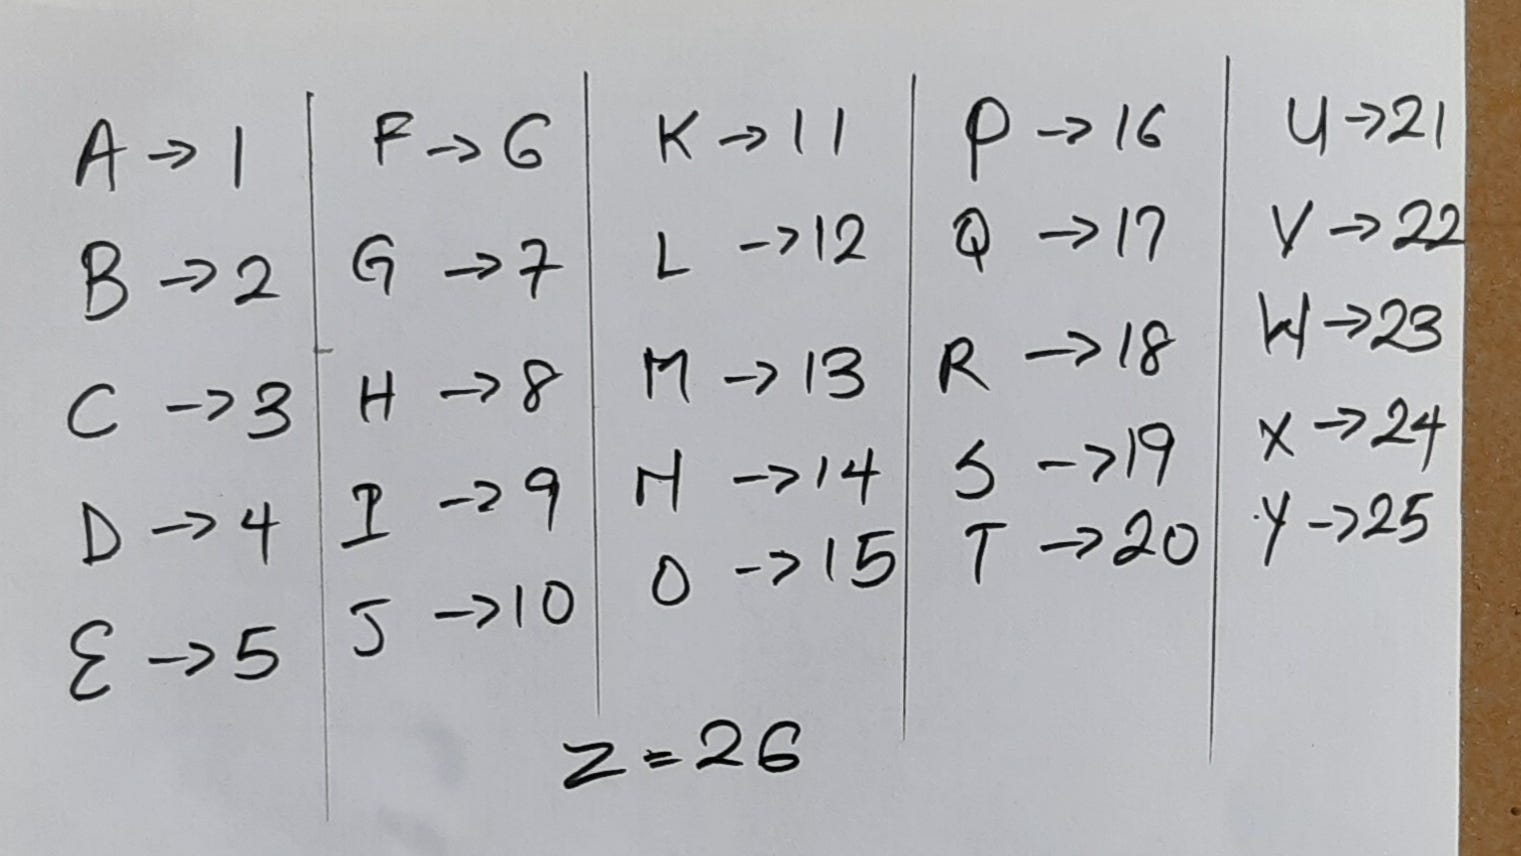 A → 1
B → 2
C → 3
D → 4
E → 5
F → 6
G → 7
H → 8
I → 9
J → 10
K → 11
L → 12
M → 13
N → 14
O → 15
P → 16
Q → 17
R → 18
S → 19
T → 20
U → 21
V → 22
W → 23
X → 24
Y → 25
Z = 26